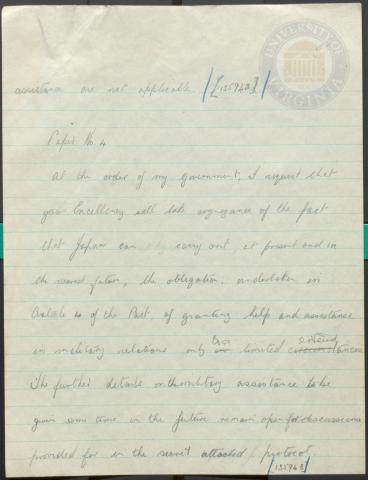 UNIVERSITY OF VIRGINIA
assistance are not applicable. [135942]
Paper No. 4
At the order of my government, I request that
your Excellency will take cognizance of the fact
that Japan can only carry out, at present and in
the nearest future, the obligation, undertaken in
Article 4 of the Pact, of granting help and assistance
in military relations only to limited extent circumstances
The further details on the military assistance to be
given some time in the future remain open for discussions
provided for in the secret attached protocol.